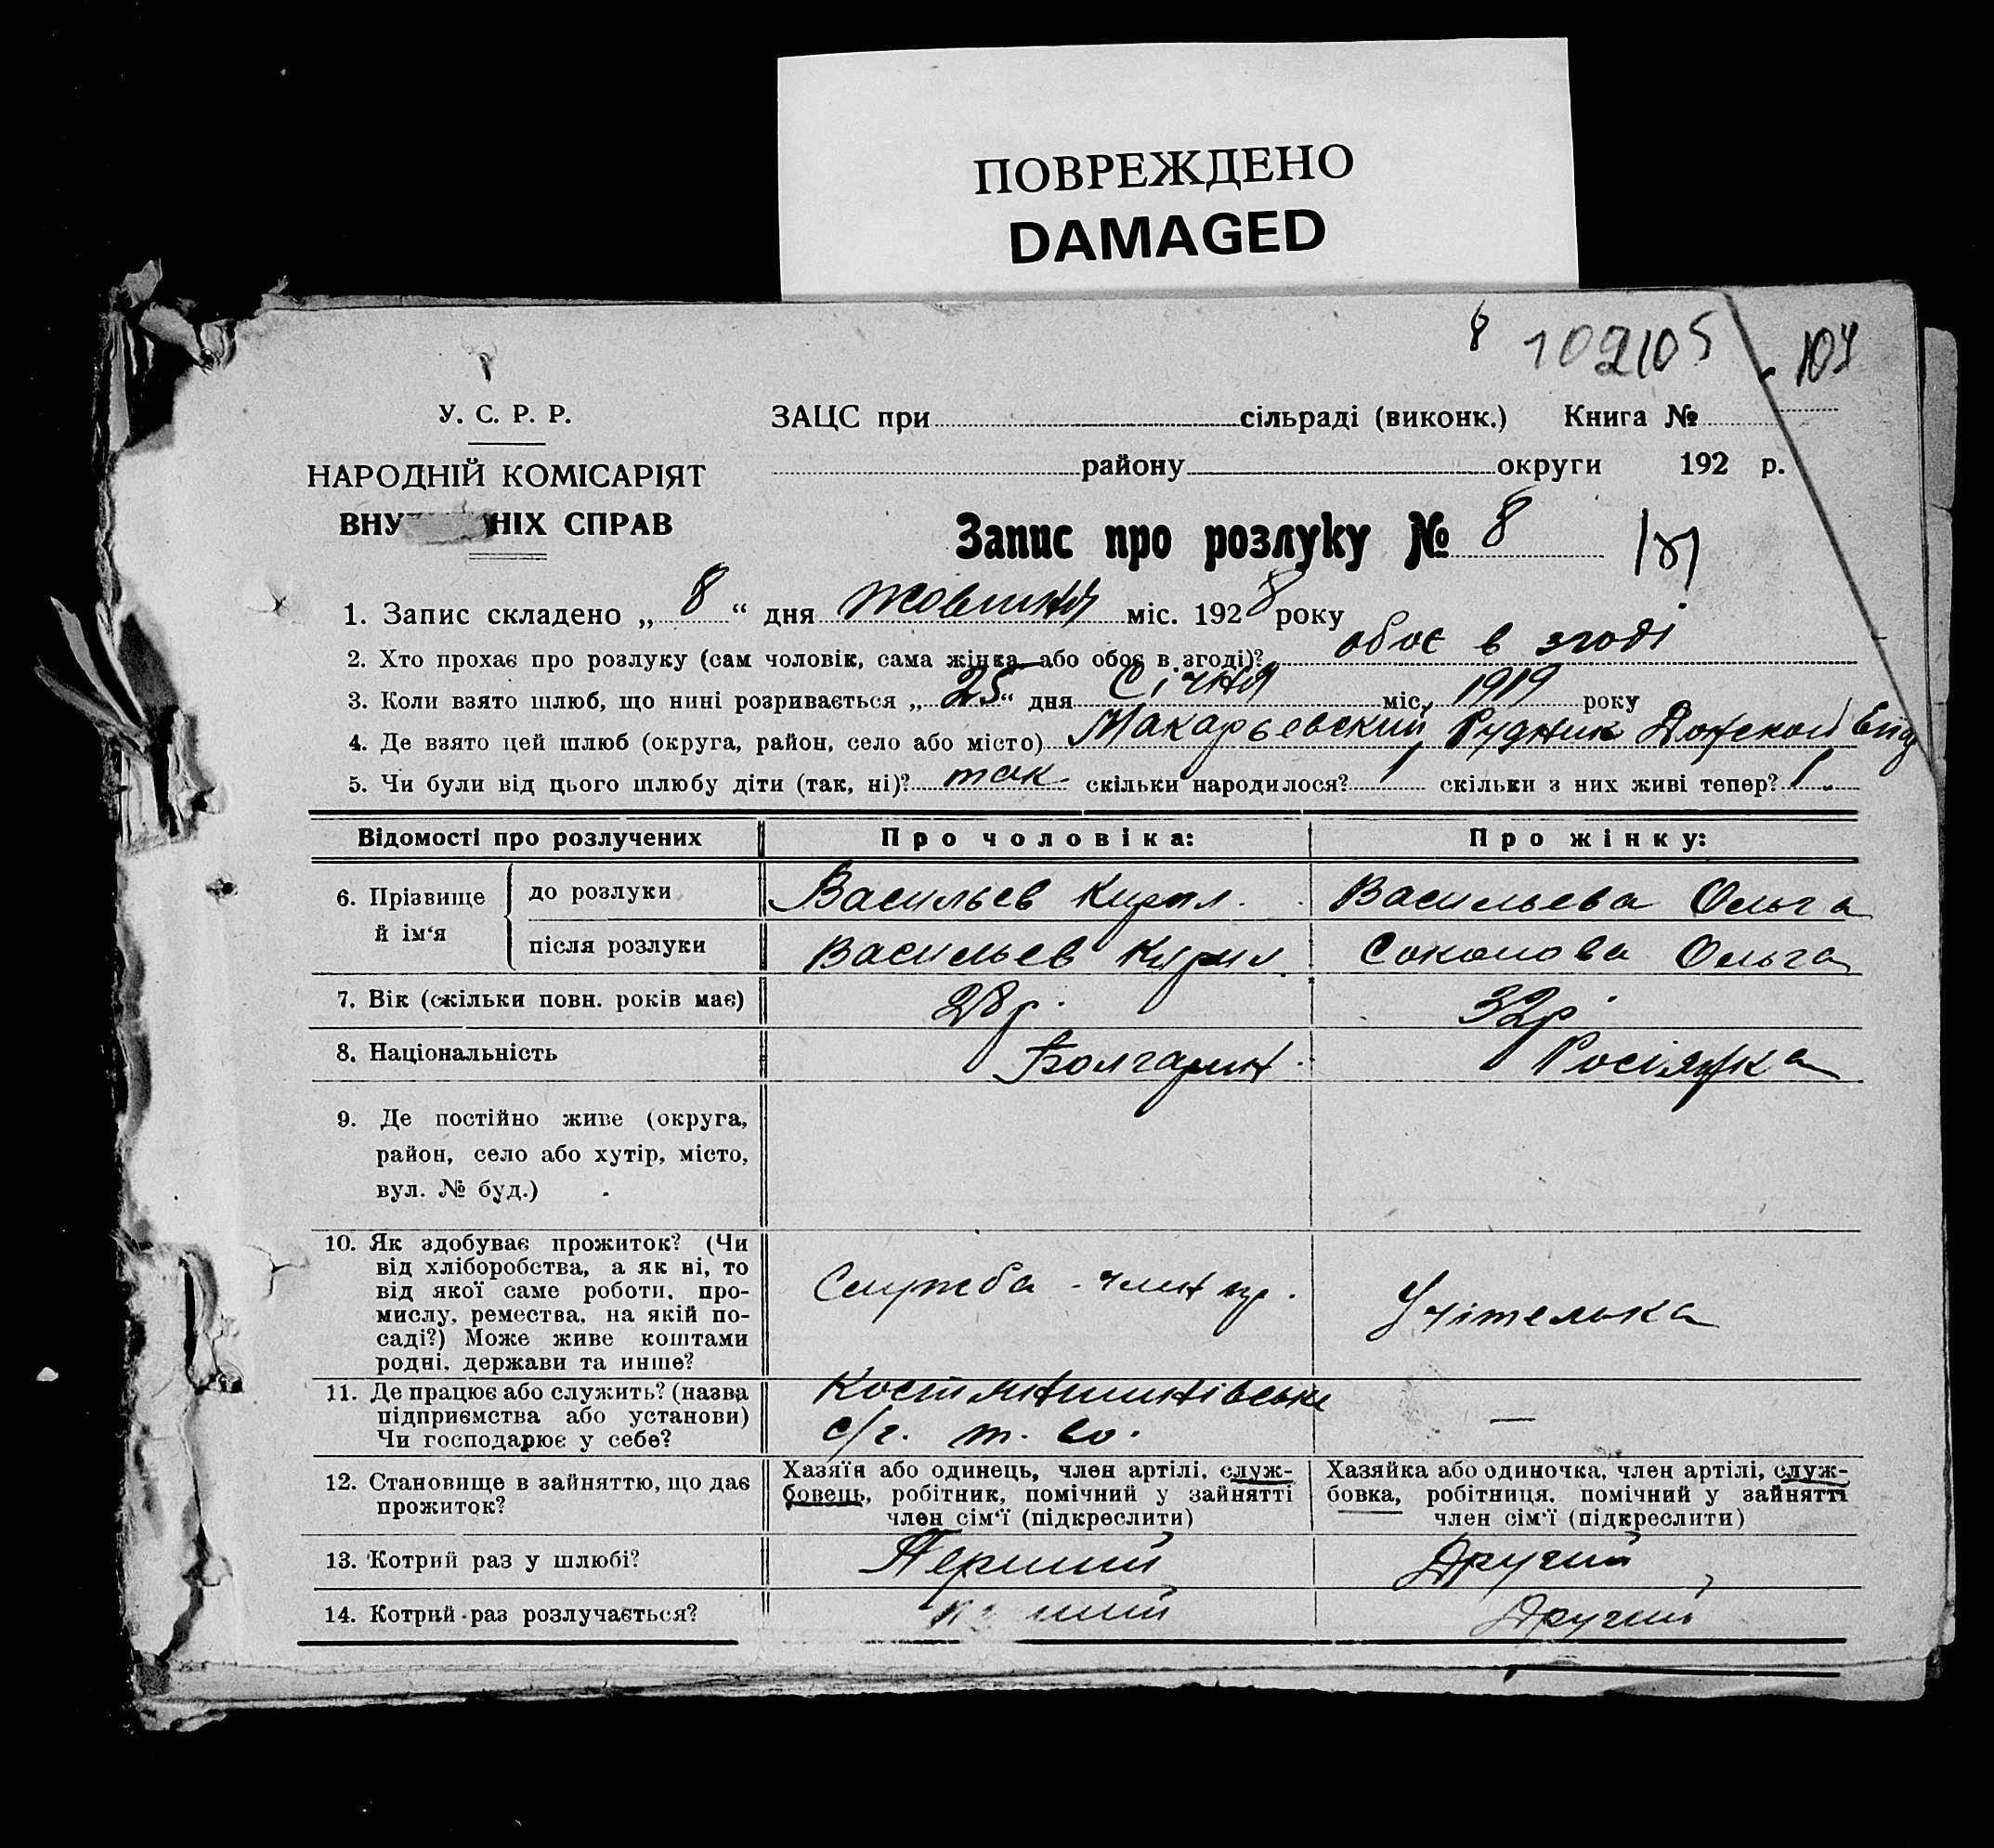 ПОВРЕЖДЕНО
DAMAGED
8 102 105 104
У. С. Р. Р.
НАРОДНІЙ КОМІСАРІЯТ
ВНУ НІХ СПРАВ
ЗАЦС при сільраді (виконк.) Книга №
району округи 192 р.
Запис про розлуку № 8
1. Запис складено „ 8 “ дня жовтня міс. 1928 року
2. Хто прохає про розлуку (сам чоловік, сама жінка або обоє в згоді)? обоє в згоді
3. Коли взято шлюб, що нині розривається „ 25 “ дня Січня міс. 1919 року
4. Де взято цей шлюб (округа, район, село або місто) Макарьевский Рудник Донской
5. Чи були від цього шлюбу діти (так, ні)? так скільки народилося? 1 скільки з них живі тепер? 1.
Відомості про розлучених Про чоловіка: Про жінку:
6. Прізвище й ім‘я
до розлуки Васильев Кирил. Васильева Ольга
після розлуки Васильев Кирил. Соколова Ольга
7. Вік (скільки повн. років має) 28 р. 32 р.
8. Національність Болгарин. Росіянка
9. Де постійно живе (округа,
район, село або хутір, місто,
вул. № буд.)
10. Як здобуває прожиток? (Чи
від хліборобства, а як ні, то
від якої саме роботи, про-
мислу, ремества, на якій по-
саді?) Може живе коштами
родні, держави та инше?
Служба - член пр.
Учітелька
11. Де працює або служить? (назва
підприємства або установи)
Чи господарює у себе?
Костянтинівське
с/г. т. во.
—
12. Становище в зайняттю, що дає
прожиток?
Хазяїн або одинець, член артілі, служ-
бовець, робітник, помічний у зайнятті
член сім‘ї (підкреслити)
Хазяйка або одиночка, член артілі, служ-
бовка, робітниця, помічний у зайнятті
член сім‘ї (підкреслити)
13. Котрий раз у шлюбі? Перший Другий
14. Котрий раз розлучається? Другий